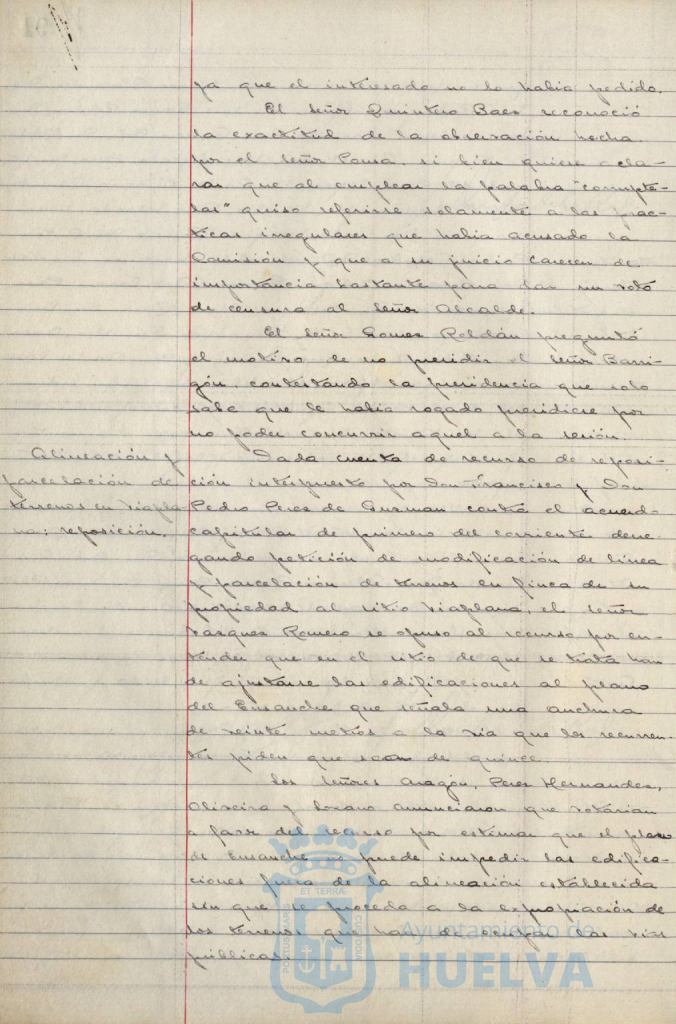 ya que el interesado no lo había pedido.
El Señor Quintero Baez reconoció
la exactitud de la observación hecha
por el Señor Ponsa, si bien quiere acla-
rar que al emplear la palabra "corrupte-
las" quiso referirse solamente a las prac-
ticas irregulares que había acusado la
Comisión y que a su juicio carecen de
importancia bastante para dar un voto
de censura al Señor Alcalde.
El Señor Gomez Roldán preguntó
el motivo de no presidir el Señor Barri-
gón, contestando la presidencia que solo
sabe que le había rogado presidiese por
no poder concurrir aquel a la sesión.
Alineación y
parcelación de
terrenos en Viapla
na: reposición.
Dada cuenta de recurso de reposi-
ción interpuesto por Don Francisco y Don
Pedro Perez de Guzman contra el acuerdo
capitular de primero del corriente dene-
gando petición de modificación de linea
y parcelación de terrenos en finca de su
propiedad al sitio Viaplana, el Señor
Vazquez Romero se opuso al recurso por en-
tender que en el sitio de que se trata han
de ajustarse las edificaciones al plano
del Ensanche que señala una anchura
de veinte metros a la via que los recurren-
tes piden que sean de quince.
Los Señores Aragón, Perez Hernandez,
Oliveira y Lozano anunciaron que votarian
a favor del recurso por estimar que el plano
de Ensanche no puede impedir las edifica-
ciones fuera de la alineación establecida
sin que se proceda a la expropiación de
los terrenos que han de ocupar las vias
públicas.
PORTUS MARIS ET TERRÆ CUSTODIA
Ayuntamiento de
HUELVA